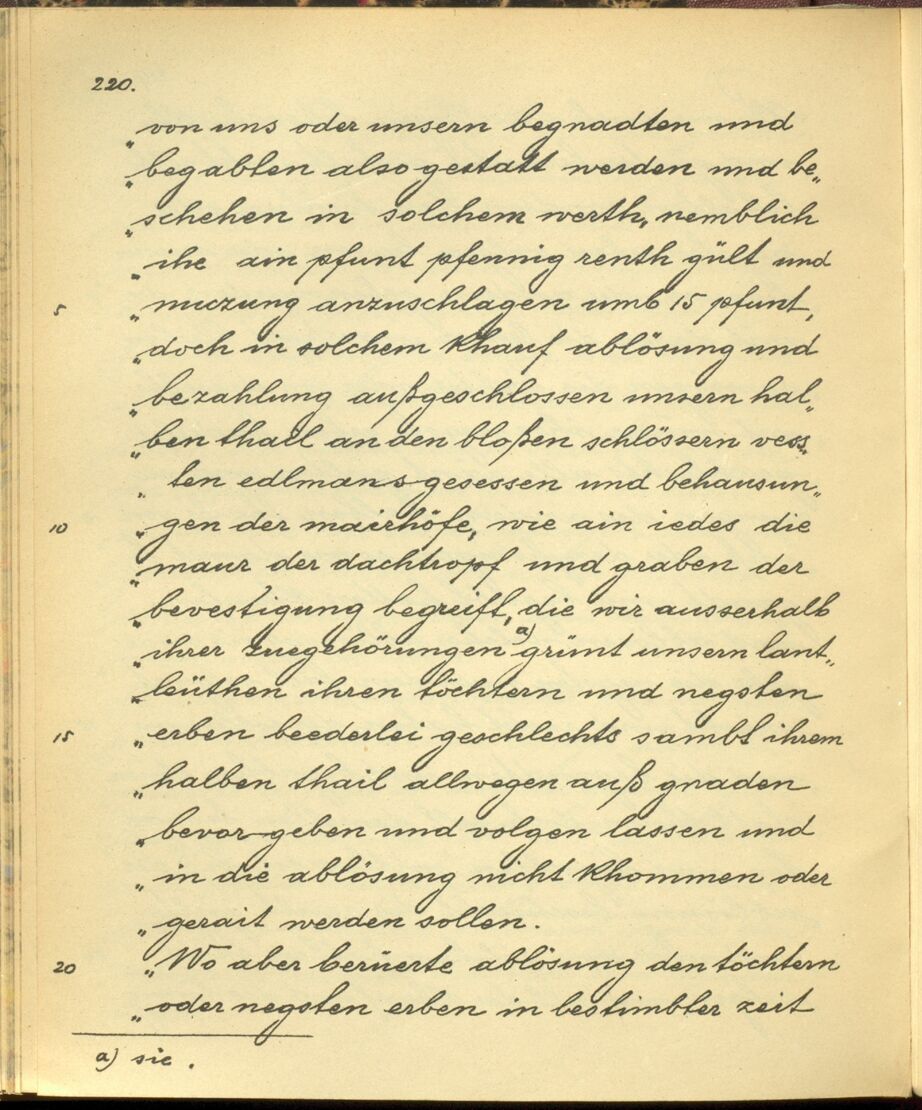 220.
„von uns oder unsern begnadten und
„begabten also gestatt werden und be„
„schehen in solchem werth, nemblich
„ihe ain pfunt pfennig renth gült und
5 „nuzung anzuschlagen umb 15 pfunt,
„doch in solchem Khauf ablösung und
„bezahlung außgeschlossen unsern hal„
„ben thail an den bloßen schlössern vess„
„ten edlmans gesessen und behausun„
10 „gen der mairhöfe, wie ain iedes die
„maur der dachtropf und graben der
„bevestigung begreift, die wir ausserhalb
„ihrer zuegehörungen a) grünt unsern lant„
„leüthen ihren töchtern und negsten
15 „erben beederlei geschlechts sambt ihrem
„halben thail allwegen auß gnaden
„bevor geben und volgen lassen und
„in die ablösung nicht Khommen oder
„gerait werden sollen.
20 „Wo aber berüerte ablösung den töchtern
„oder negsten erben in bestimbter zeit
a) sie.